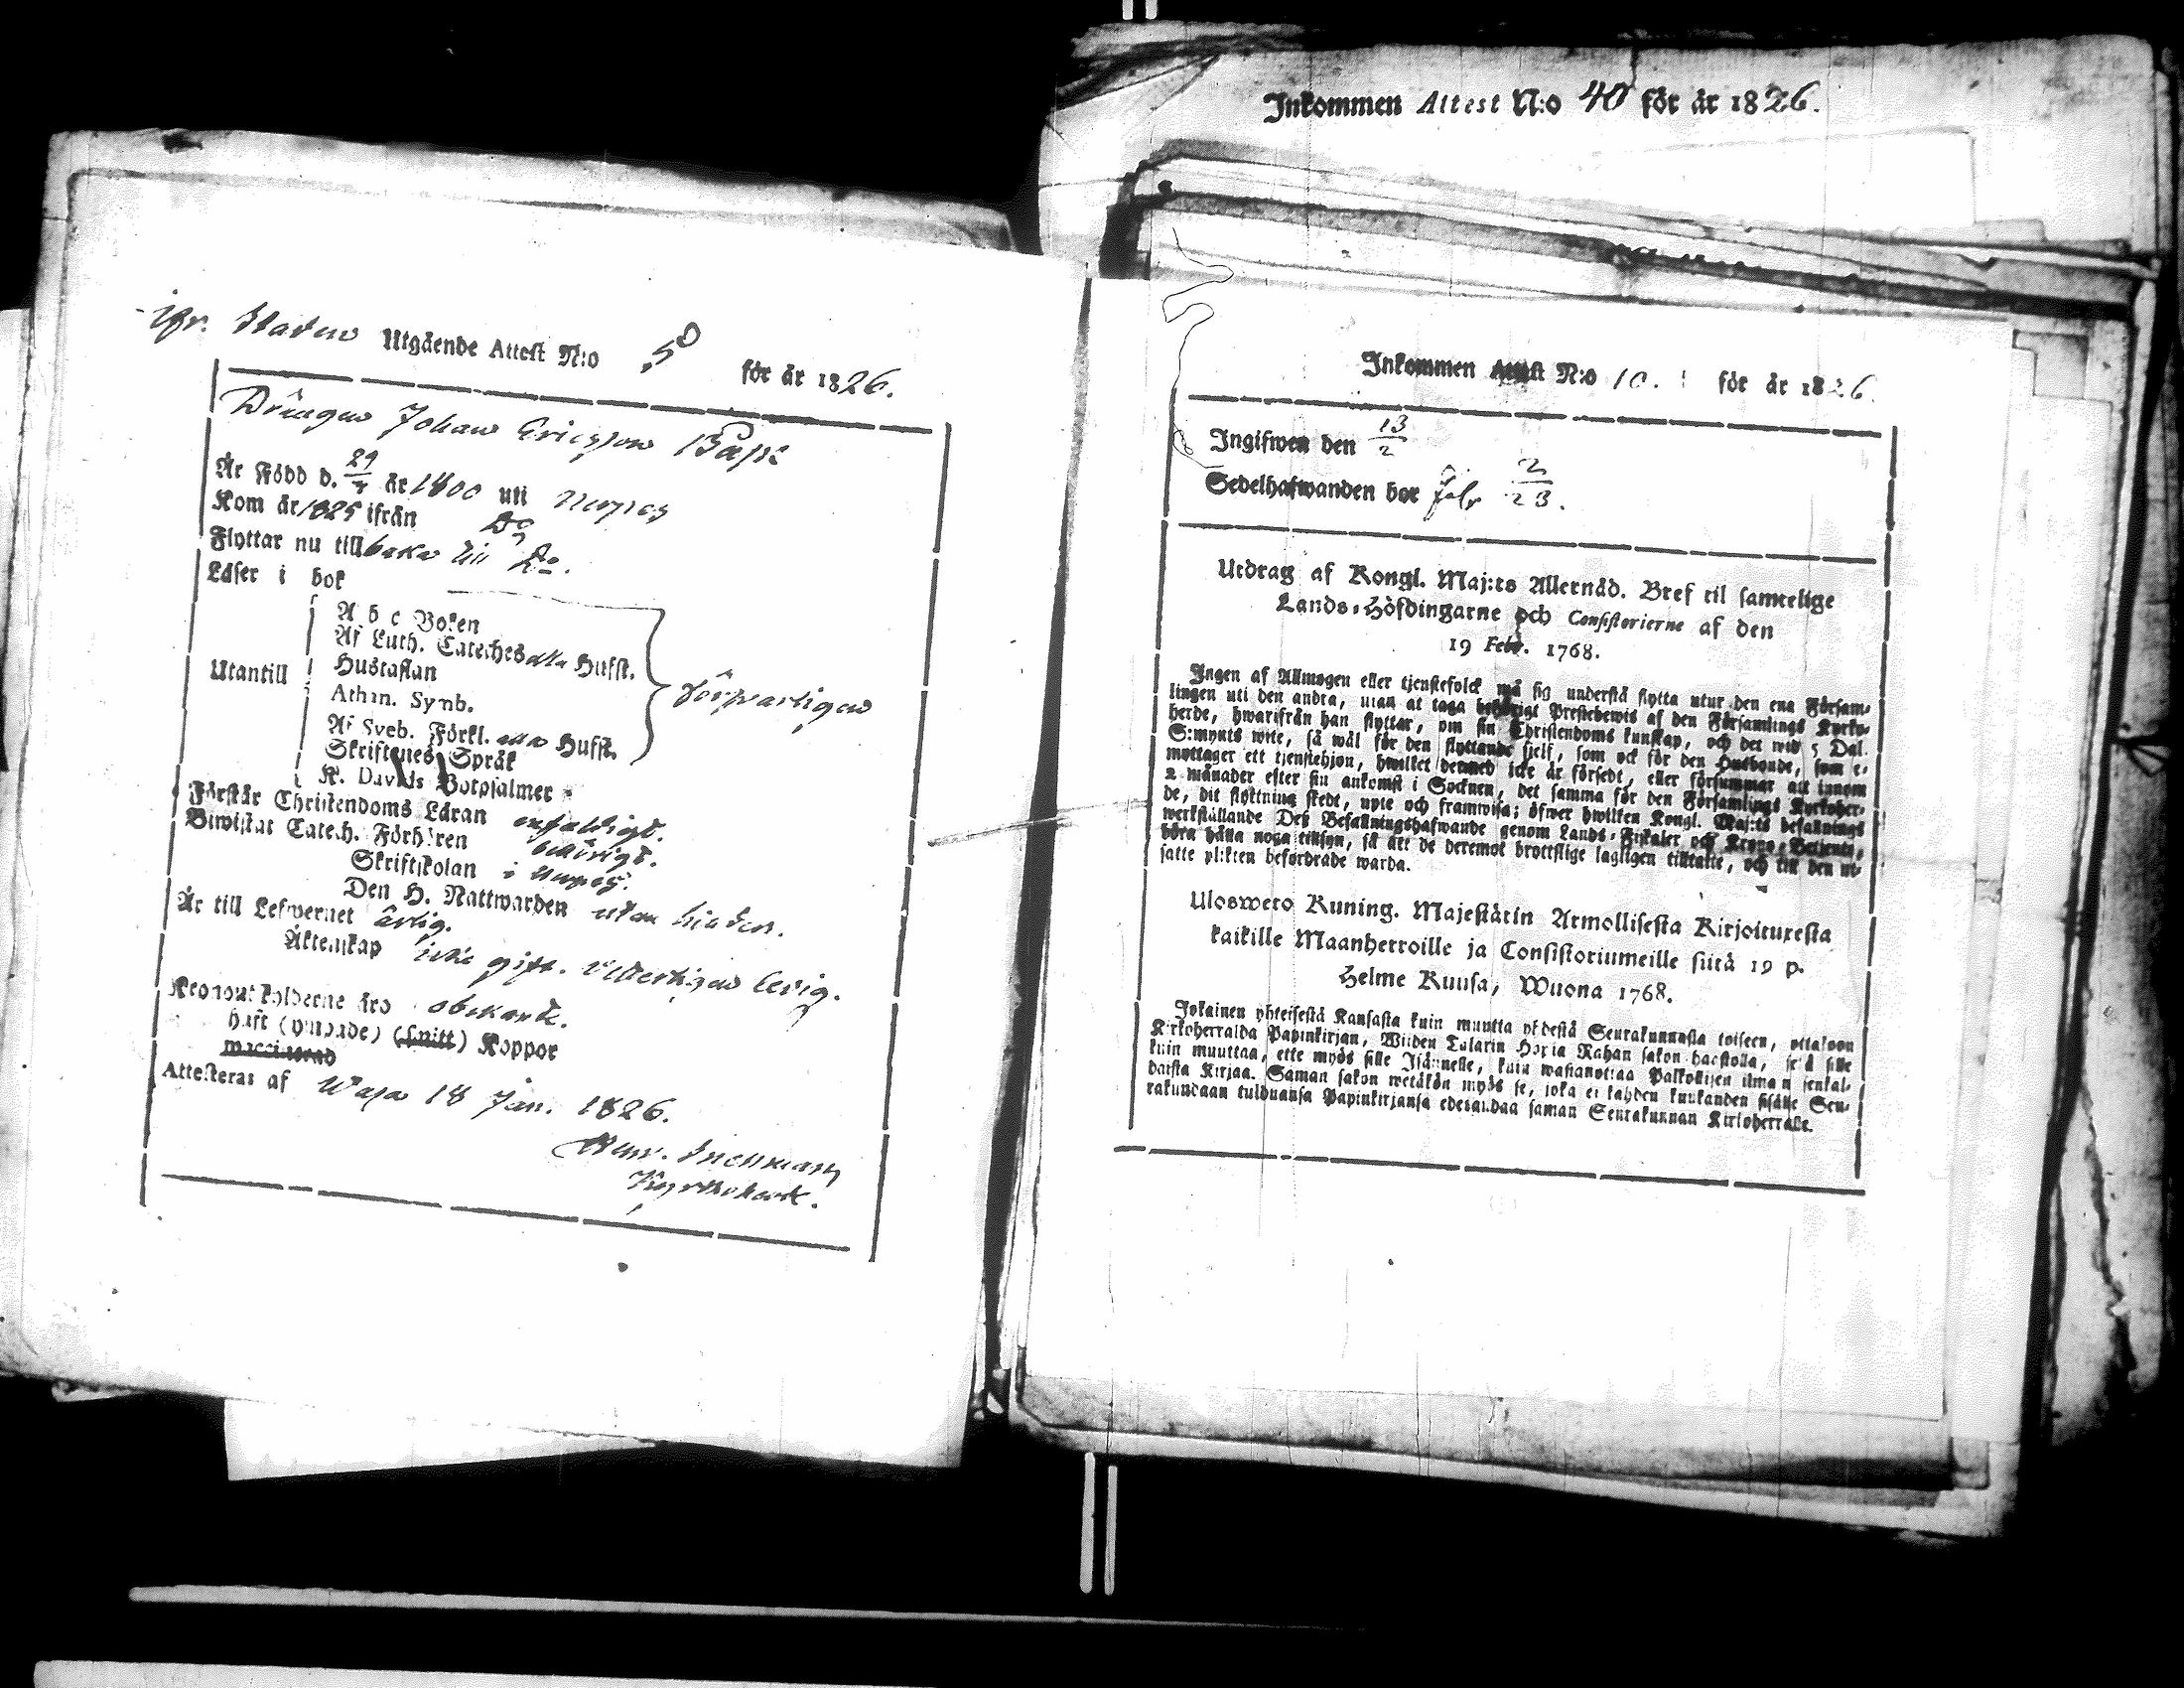 Inkommen Attest N:o 40 för år 1826.
ifr. Staden Utgående Attest N:o 5 för år 1826.
Drängen Johan Ericsson
Är Född d. 29 år 1800 uti Nerpes
Kom år 1825 ifrån Do
Flyttar nu tillbaka till Do.
Läser i bok
A b c Boken
Af Luth. Cateches alla Hufst.
Hustaflan
Utantill
Athan. Symb.
Af Sveb. Förkl. alla Hufst.
Skriftenes Språk
K. Davids Botpsalmer
försvarligen
Förstår Christendoms Läran enfaldigt.
Biwistat Catech. Förhören behörigt.
Skriftskolan i Nerpes.
Den H. Nattwarden utan hinder.
Är till Lefwernet ärlig.
Äktenskap icke gift. Witterligen ledig.
Kronoutskylderne äro obekante.
Haft (ympade) (smitt) Koppor
vaccinerad
Attesteras af Wasa 18 Jan. 1826.
Snellman
Kyrkoherde.
Inkommen Attest N:o 10. för år 1826.
Ingifwen den 13/2
Sedelhafwanden bor 2/23.
Utdrag af Kongl. Maj:ts Allernåd. Bref til samtelige
Lands-Höfdingarne och Consistorierne af den
19 Febr. 1768.
Ingen af Allmogen eller tjenstefolck må sig understå flytta utur den ena Försam-
lingen uti den andra, utan at taga behörigt Prestebewis af den Församlings Kyrko-
herde, hwarifrån han flyttar, om sin Christendoms kunskap, och det wid 5 Dal.
S:mynts wite, så wäl för den flyttande sjelf, som ock för den Husbonde, som e-
mottager ett tjenstehjon, hwilket dermed icke är försedt, eller försummar att innom
2 månader efter sin ankomst i Socknen, det samma för den Församlings Kyrkoher-
de, dit flyttning skedt, upte och framwisa; öfwer hwilken Kongl. Maj:ts befallnings
werkställande Deß Befallningshafwande genom Lands-Fiskaler och Krono-Betjente,
böra hålla noga tillsyn, så att de deremot brottslige lagligen tilltalte, och till den ut-
satte plikten befordrade warda.
Ulosweto Kuning. Majestätin Armollisesta Kirjoituxesta
kaikille Maanherroille ja Consistoriumeille siitä 19 p.
Helme Kuusa, Wuona 1768.
Jokainen yhteisestä Kansasta kuin muutta yhdestä Seurakunnasta toiseen, ottakoon
Kirkoherralda Papinkirjan, Wiiden Talarin Hopia Rahan sakon haastolla, sekä sille
kuin muuttaa, ette myös sille Isännelle, kuin wastanottaa Palkollisen ilman senkal-
daista Kirjaa. Saman sakon wetäkön myös se, joka ei kahden kuukauden sisälle Seu-
rakundaan tulduansa Papinkirjansa edesandaa saman Seurakunnan Kirkoherralle.